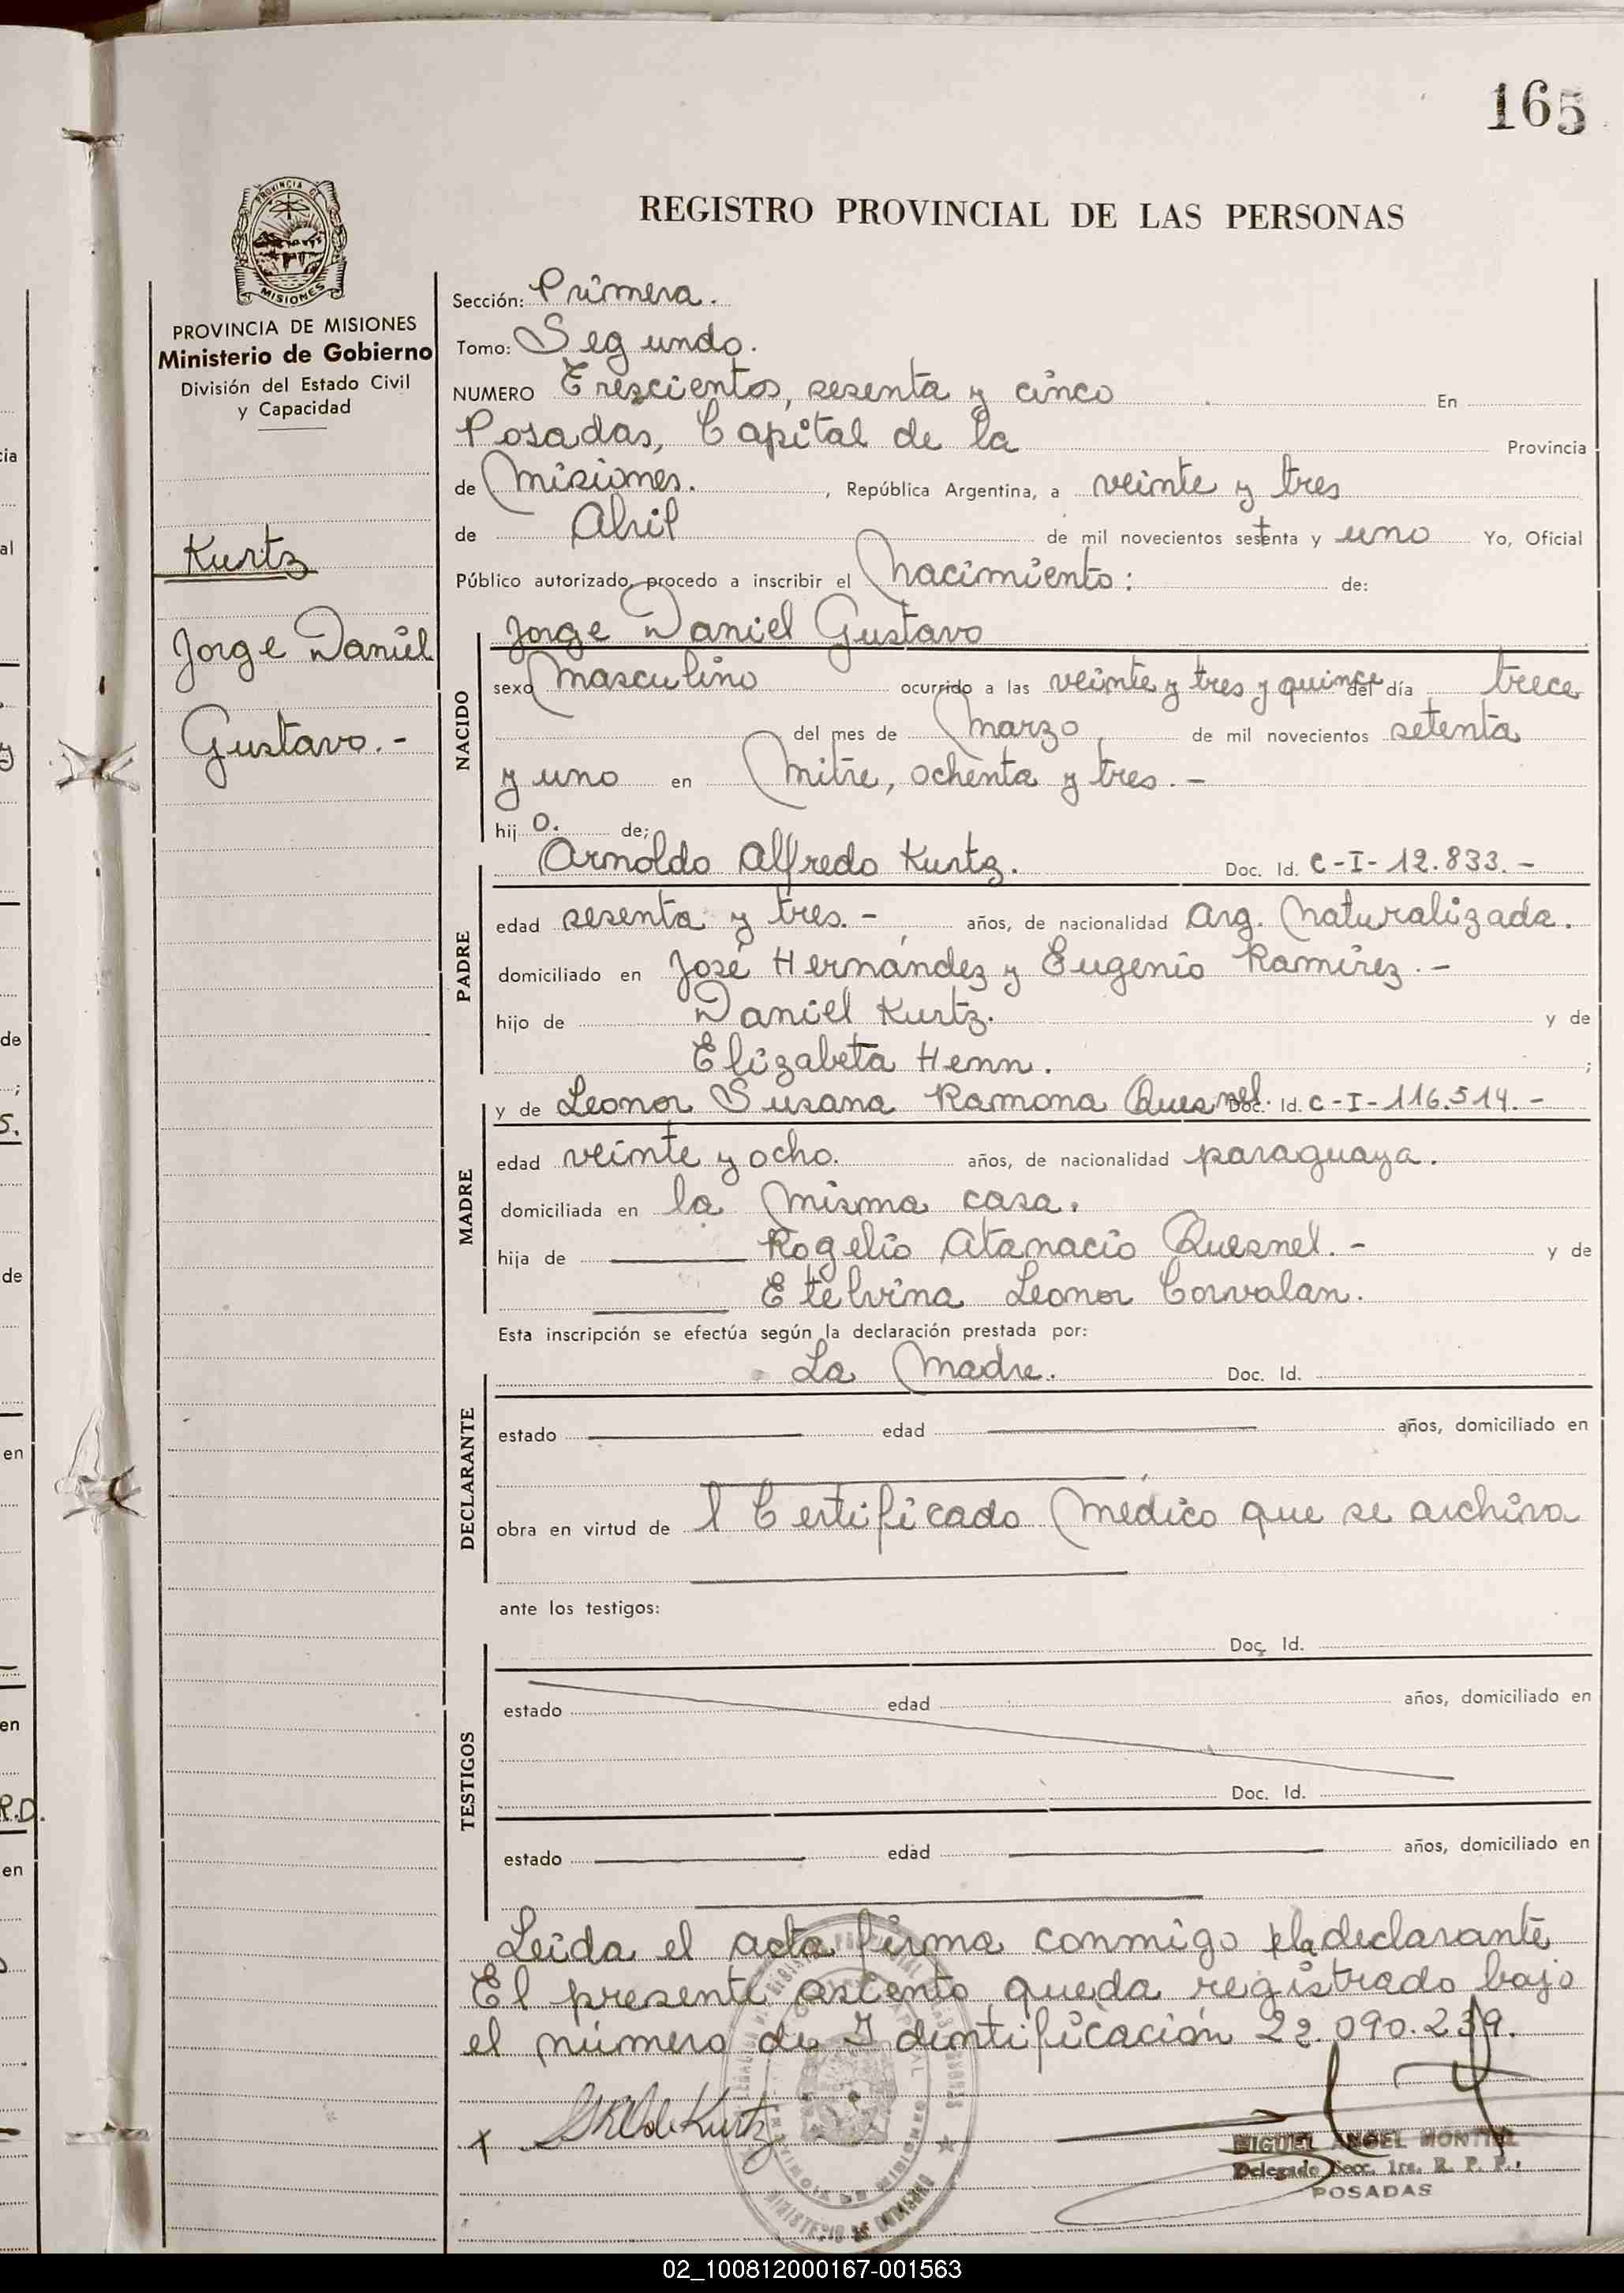 165
PROVINCIA DE
MISIONES
PROVINCIA DE MISIONES
Ministerio de Gobierno
División del Estado Civil
y Capacidad
Kurtz
Jorge Daniel
Gustavo.-
REGISTRO PROVINCIAL DE LAS PERSONAS
Sección: Primera.
Tomo: Segundo.
NUMERO Trescientos, sesenta y cinco En
Posadas, Capital de la Provincia
de Misiones. , República Argentina, a veinte y tres
de Abril de mil novecientos setenta y uno Yo, Oficial
Público autorizado, procedo a inscribir el Nacimiento: de:
NACIDO
Jorge Daniel Gustavo
sexo Masculino ocurrido a las veinte y tres y quince del día trece
del mes de Marzo de mil novecientos setenta
y uno en Mitre, ochenta y tres.-
hij o. de;
PADRE
Arnoldo Alfredo Kurtz. Doc. Id. C-I-12.833.-
edad sesenta y tres.- años, de nacionalidad Arg. Naturalizada.
domiciliado en José Hernández y Eugenio Ramírez.-
hijo de Daniel Kurtz. y de
Elizabeta Henn. ;
MADRE
y de Leonor Susana Ramona Quesnel. Doc. Id. C-I-116.514.-
edad veinte y ocho. años, de nacionalidad paraguaya.
domiciliada en la misma casa.
hija de Rogelio Atanacio Quesnel.- y de
Etelvina Leonor Corvalan.
Esta inscripción se efectúa según la declaración prestada por:
DECLARANTE
La Madre. Doc. Id.
estado edad años, domiciliado en
obra en virtud de l Certificado Médico que se archiva
ante los testigos:
TESTIGOS
Doc. Id.
estado edad años, domiciliado en
Doc. Id.
estado edad años, domiciliado en
Leída el acta firma conmigo la declarante
El presente asiento queda registrado bajo
el número de Identificación 22.090.239.
de Kurtz
MIGUEL ANGEL MONTIEL
Delegado Secc. 1ra. R. P. P.
POSADAS
02_100812000167-001563